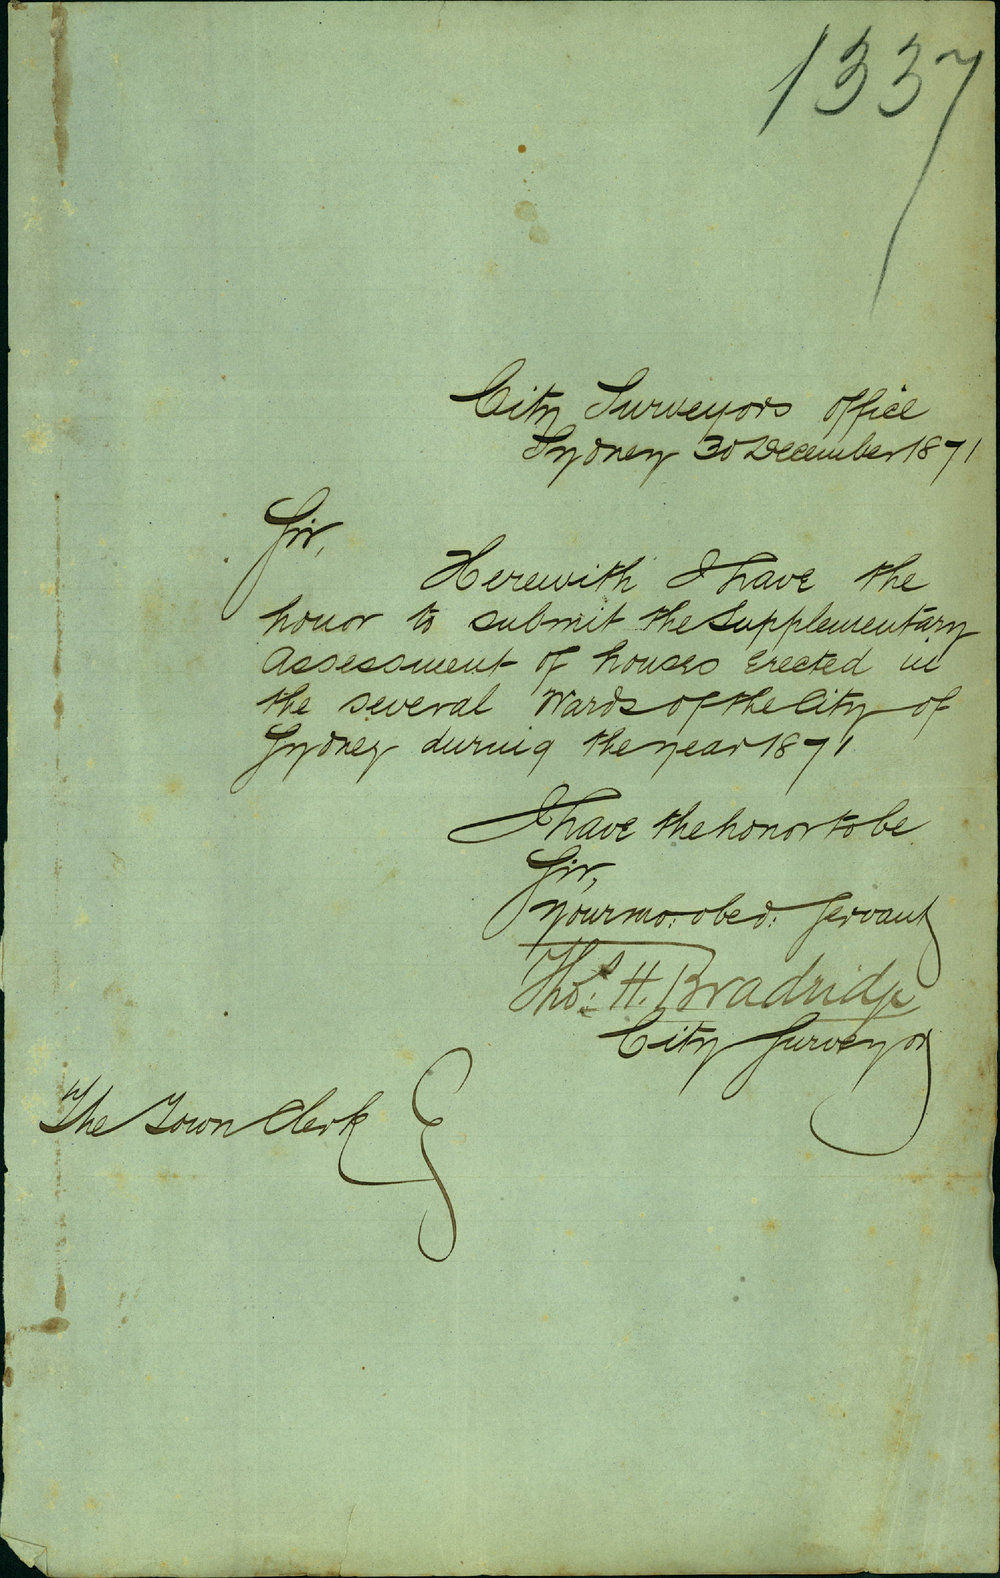 1337
City Surveyors office
Sydney 30 December 1871
Sir,
Herewith I have the
honor to submit the Supplementary
Assessment of houses Erected in
the several Wards of the City of
Sydney during the year 1871
I have the honor to be
Sir,
Your mo: obed: Servant
Thos: H. Bradridge
City Surveyor
The Town Clerk